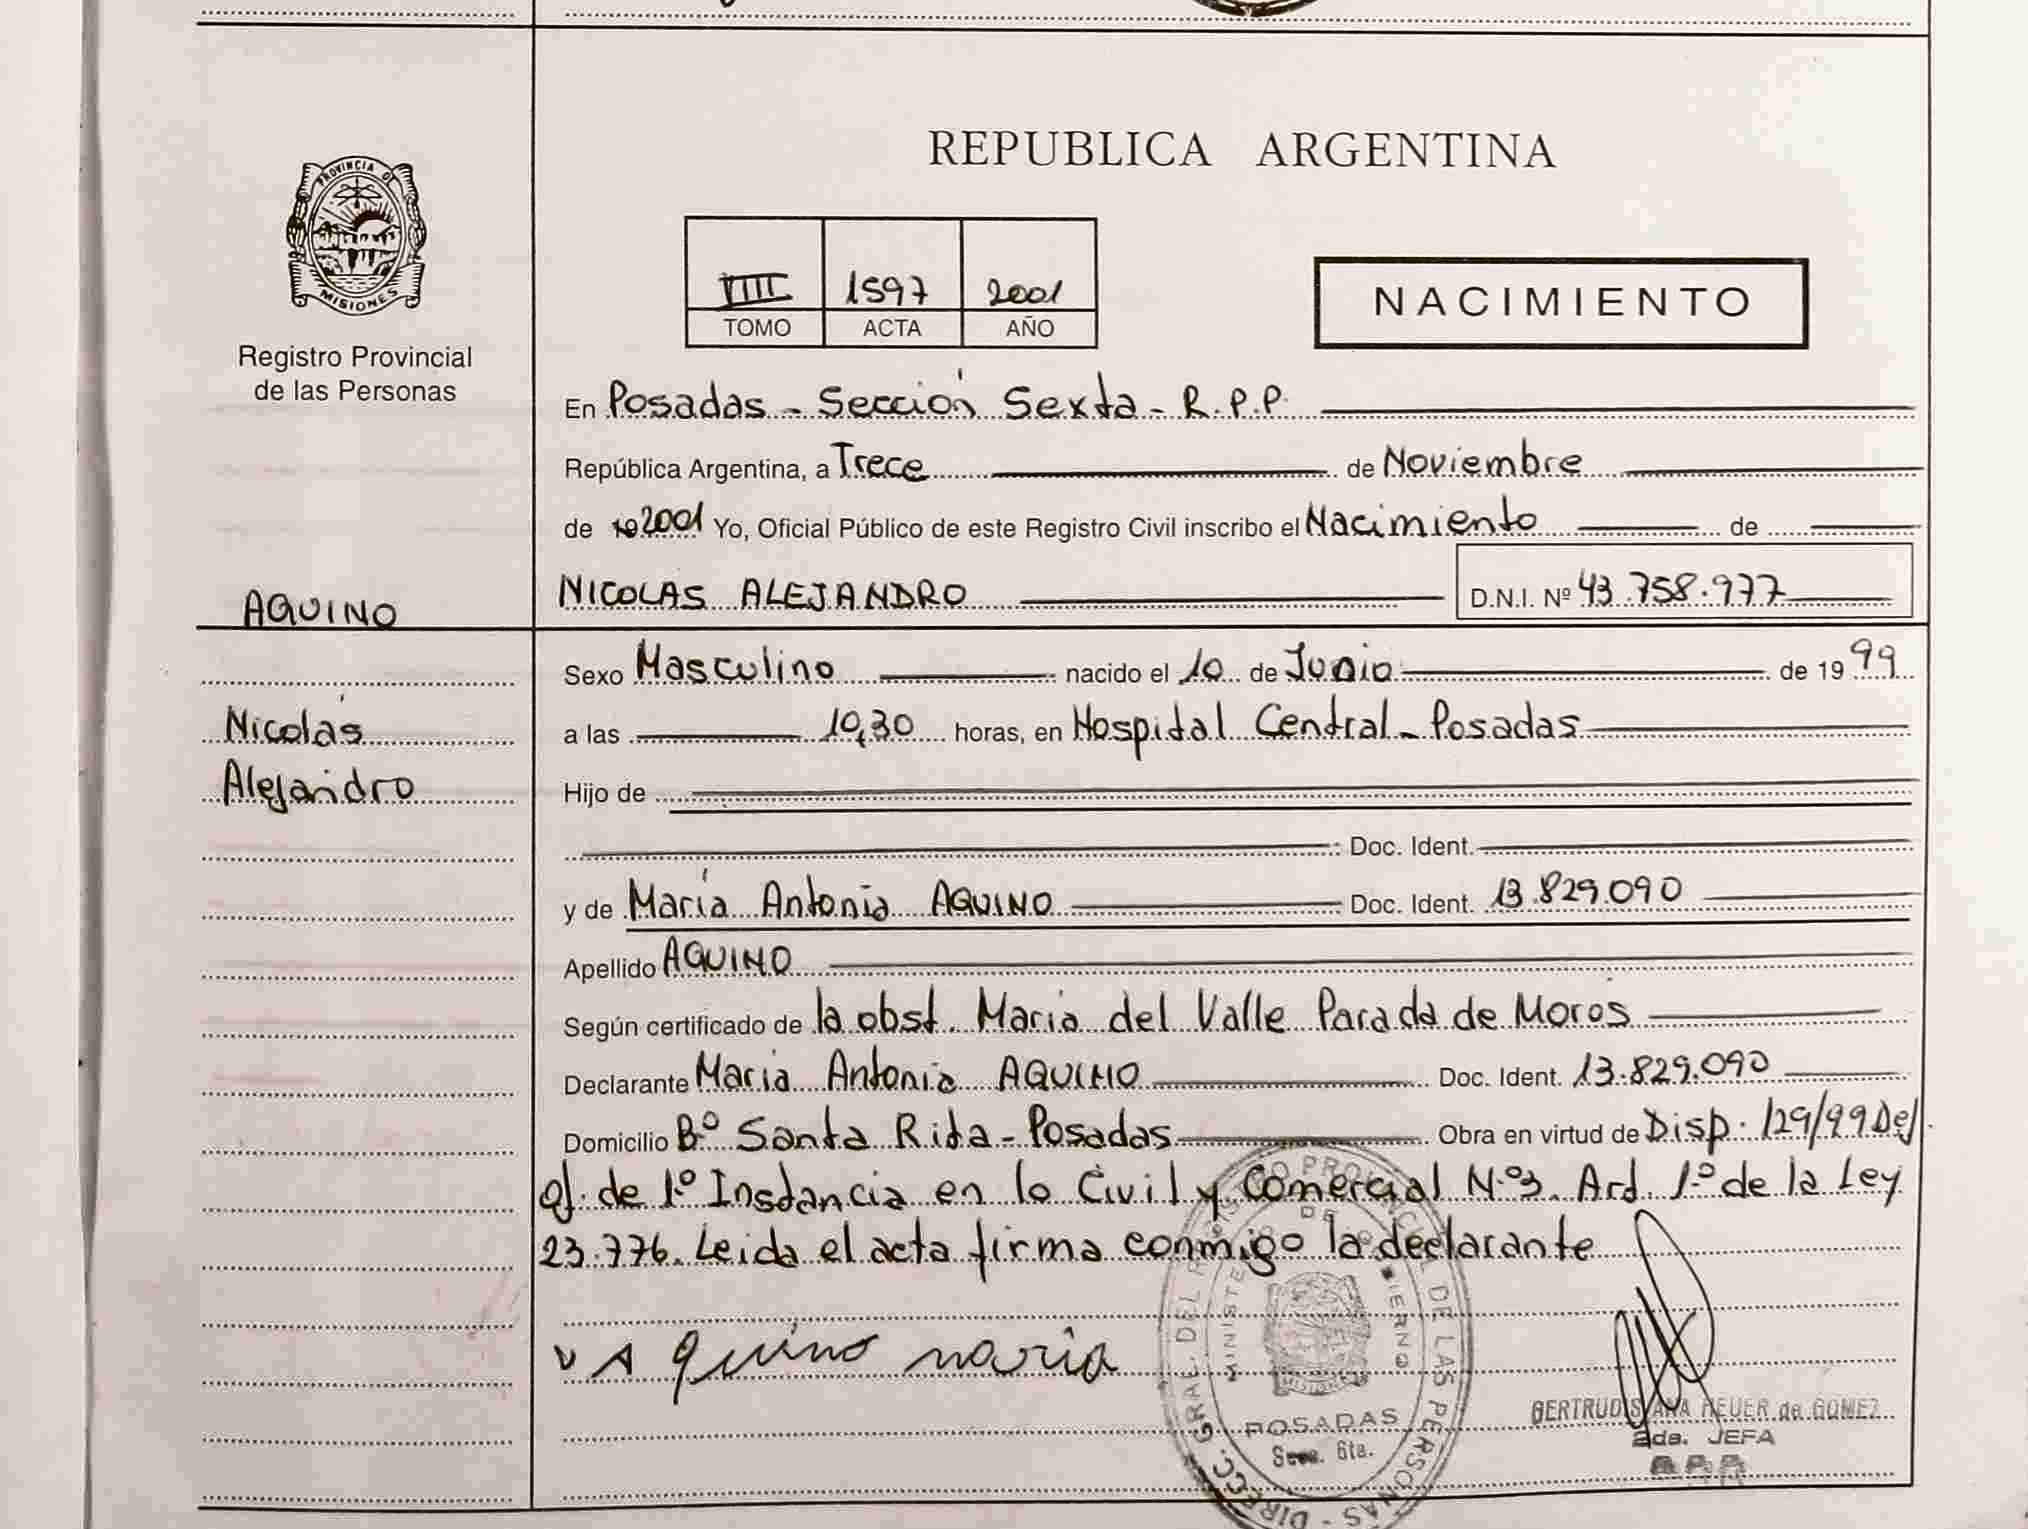 PROVINCIA DE
MISIONES
Registro Provincial
de las Personas
REPUBLICA ARGENTINA
1597 2001
TOMO ACTA AÑO
NACIMIENTO
En Posadas - Sección Sexta - R.P.P.
República Argentina, a Trece de Noviembre
de 19 2001 Yo, Oficial Público de este Registro Civil inscribo el Nacimiento de
AQUINO
NICOLAS ALEJANDRO D.N.I. Nº 43.758.977
Sexo Masculino nacido el 10 de Junio de 1999
Nicolás
a las 10,30 horas, en Hospital Central - Posadas
Alejandro
Hijo de
Doc. Ident.
y de María Antonia AQUINO Doc. Ident. 13.829.090
Apellido AQUINO
Según certificado de la obst. Maria del Valle Parada de Moros
Declarante Maria Antonia AQUINO Doc. Ident. 13.829.090
Domicilio Bº Santa Rita - Posadas Obra en virtud de Disp. 129/99 Del
de 1º Instancia en lo Civil y Comercial N.º3. Art. 1º de la Ley
23.776. Leida el acta firma conmigo la declarante
Aquino maria
DIRECC. GRAL. DEL REGISTRO PROVINCIAL DE LAS PERSONAS
MINISTERIO DE GOBIERNO
POSADAS
Secc. 6ta.
GERTRUDIS ANA HEUER de GOMEZ
2da. JEFA